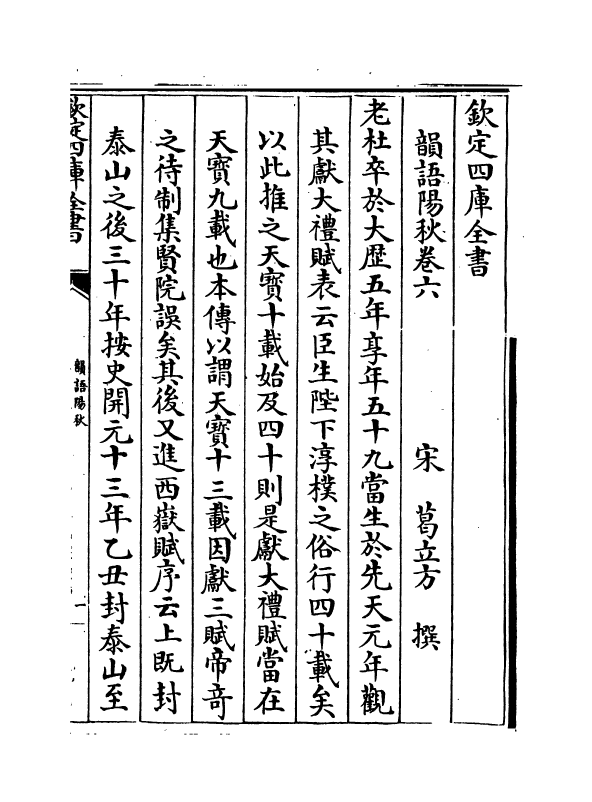 欽定四庫全書
韻語陽秋卷六 宋 葛立方 撰
老杜卒於大歴五年享年五十九當生於先天元年觀
其獻大禮賦表云臣生陛下淳樸之俗行四十載矣
以此推之天寳十載始及四十則是獻大禮賦當在
天寳九載也本傳以謂天寳十三載因獻三賦帝奇
之待制集賢院誤矣其後又進西嶽賦序云上既封
泰山之後三十年按史開元十三年乙丑封泰山至
欽定四庫全書
韻語陽秋
一